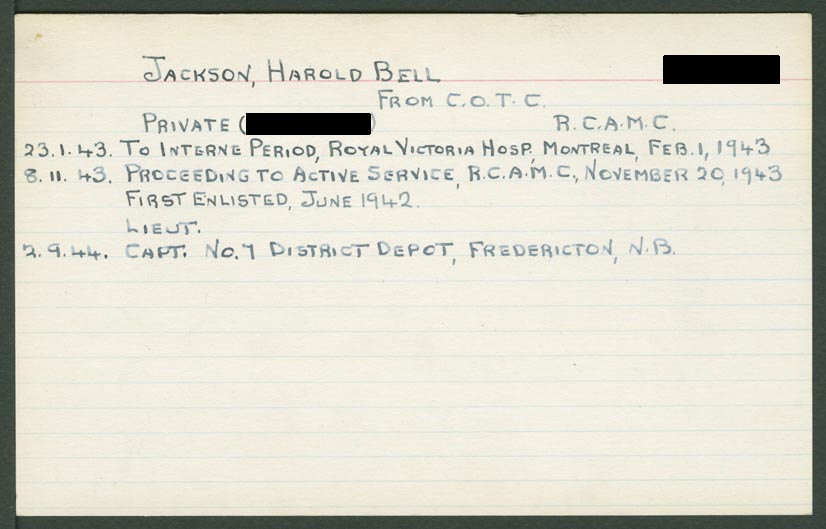 JACKSON, HAROLD BELL
FROM C.O.T.C.
PRIVATE ( ) R.C.A.M.C.
23.1.43. TO INTERNE PERIOD, ROYAL VICTORIA HOSP, MONTREAL, FEB. 1, 1943
8.11.43. PROCEEDING TO ACTIVE SERVICE, R.C.A.M.C., NOVEMBER 20, 1943
FIRST ENLISTED, JUNE 1942.
LIEUT.
2.9.44. CAPT. NO. 7 DISTRICT DEPOT, FREDERICTON, N.B.